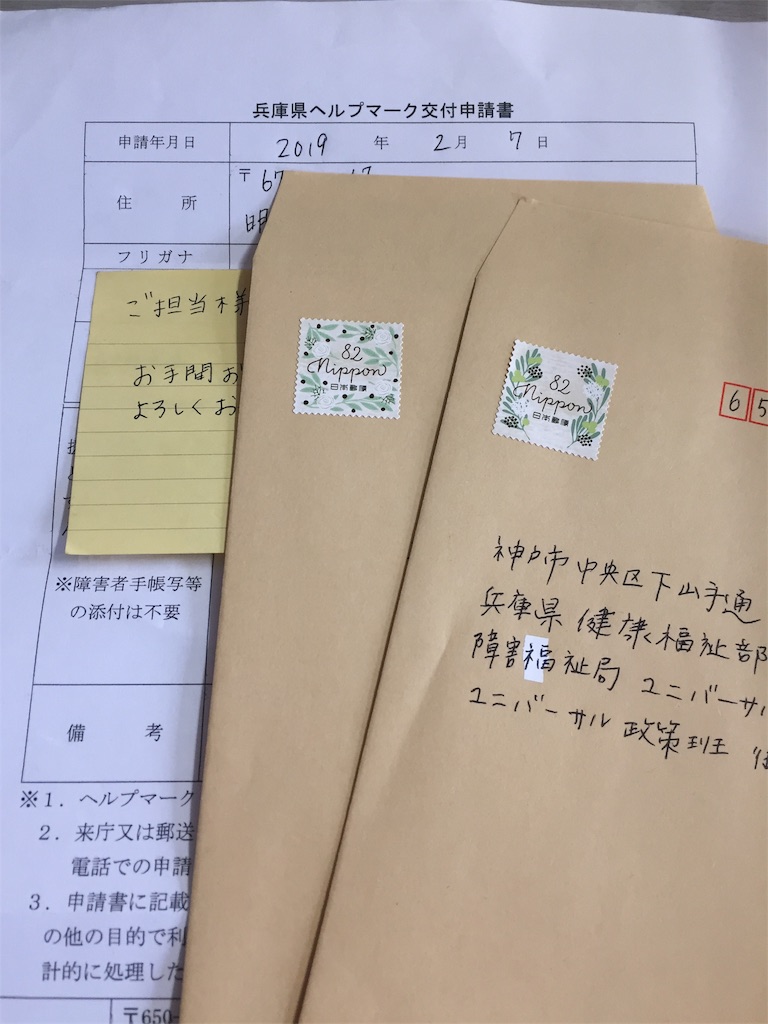 兵庫県ヘルプマーク交付申請書
申請年月日 2019 年 2月 7日
住 所 〒67
明
フリガナ
ご担当様
お手間お
よろしくお
※障害者手帳写等
の添付は不要
備 考
※1．ヘルプマーク
2．来庁又は郵送
電話での申請
3．申請書に記載
の他の目的で利
計的に処理した
〒650-
82
Nippon
日本郵便
82
Nippon
日本郵便
65
神戸市中央区下山手通
兵庫県 健康福祉部
障害福祉局 ユニバーサル
ユニバーサル 政策班